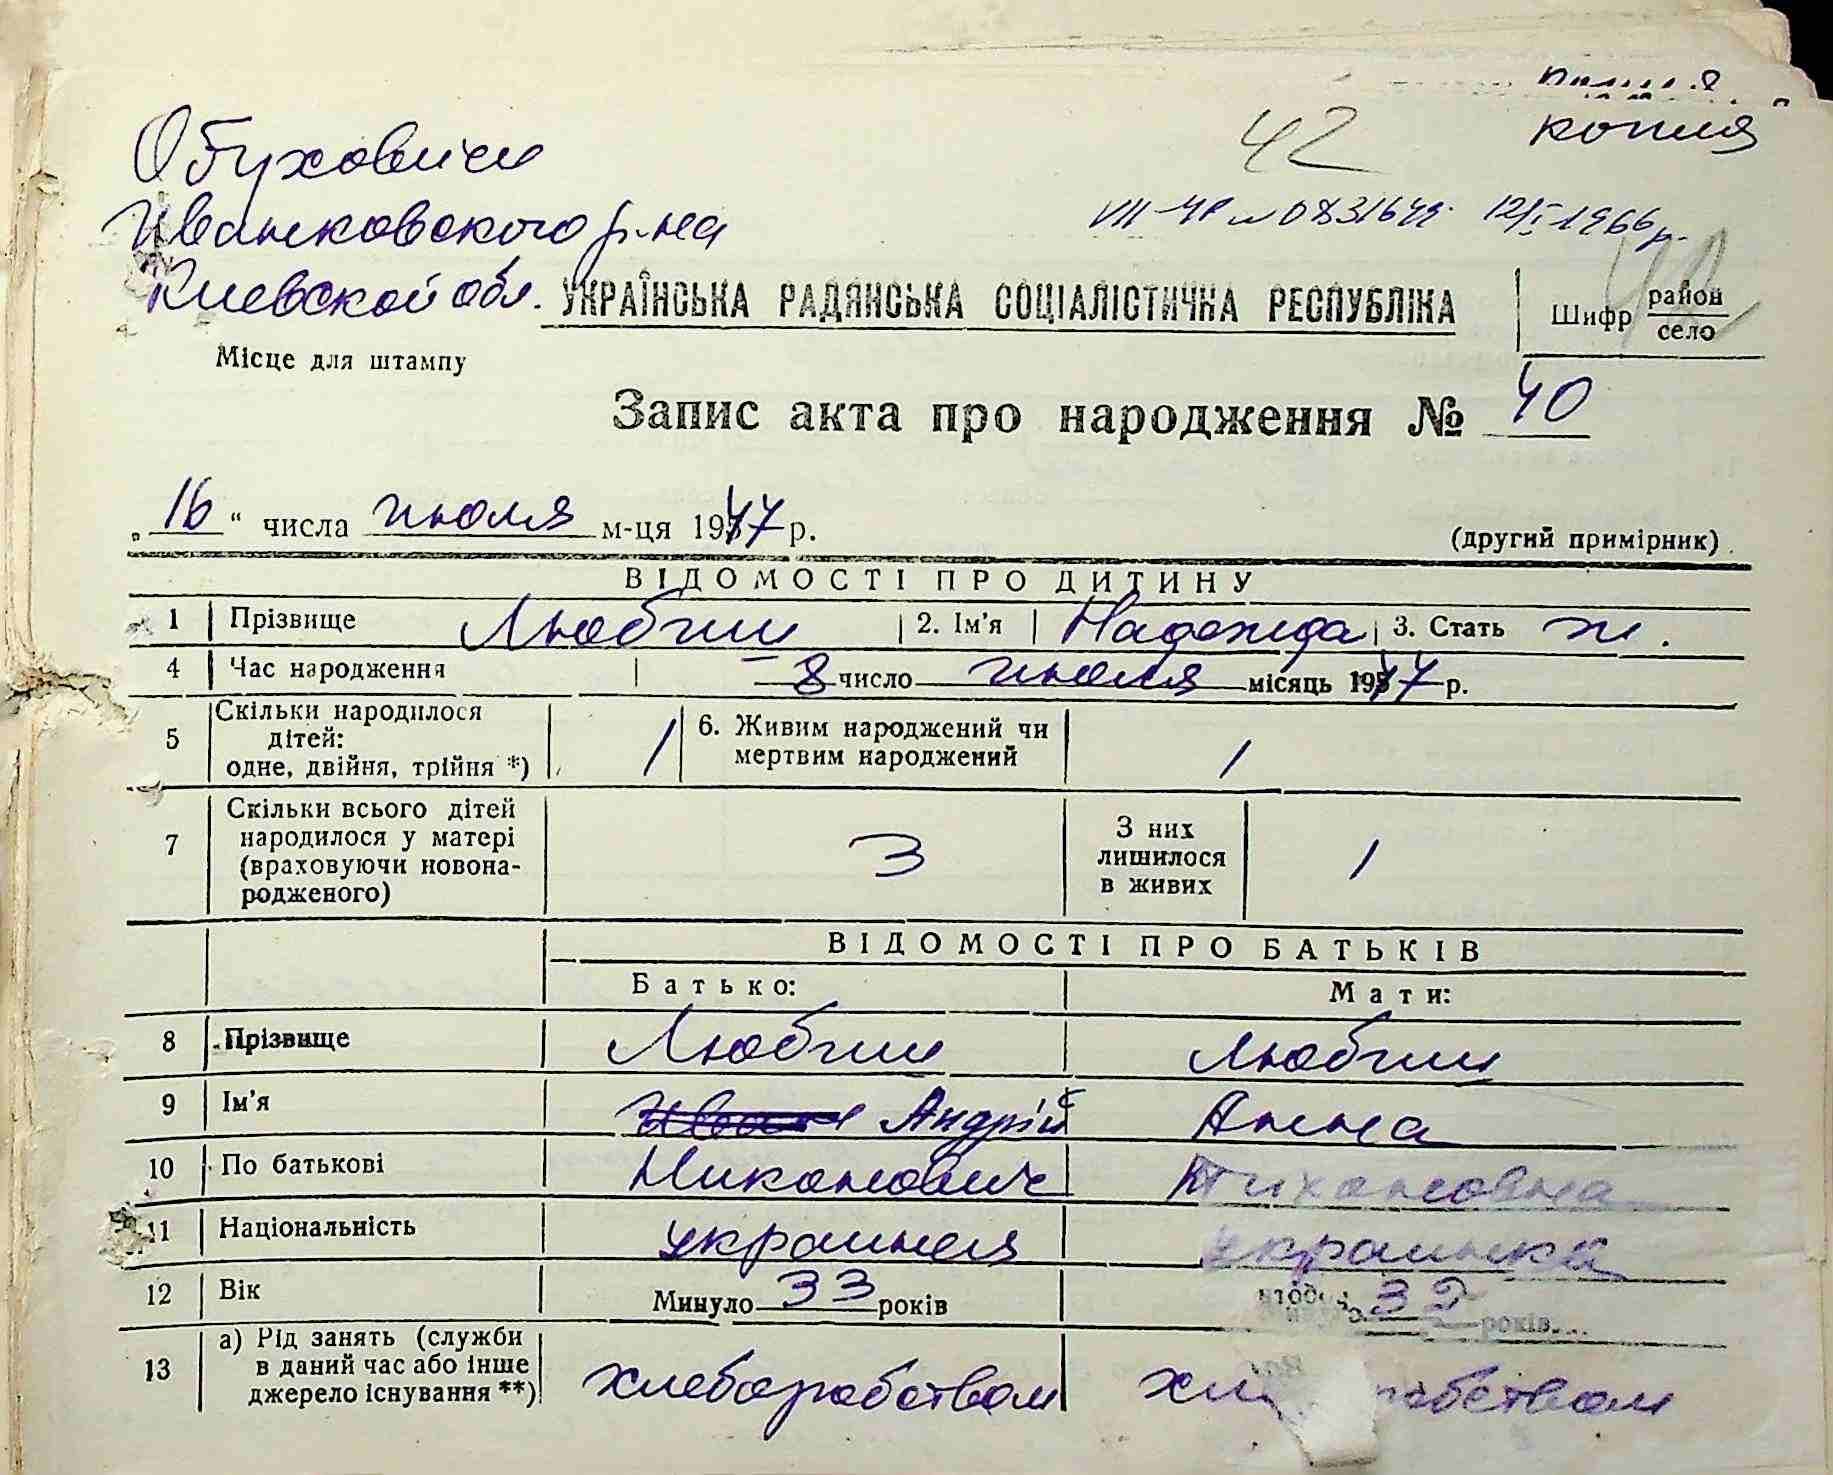 копия
42
Обуховичи
Иванковского р-на
Киевской обл.
VIII-ЧР № 0831649 12/I 1966 р.
УКРАЇНСЬКА РАДЯНСЬКА СОЦІАЛІСТИЧНА РЕСПУБЛІКА
Шифр район
село
42
Місце для штампу
Запис акта про народження № 40
„16“ числа июля м-ця 1947 р.
(другий примірник)
ВІДОМОСТІ ПРО ДИТИНУ
1 Прізвище Любчи 2. Ім'я Надежда 3. Стать ж.
4 Час народження 8 число июля місяць 1947 р.
5 Скільки народилося дітей: одне, двійня, трійня *) 1 6. Живим народжений чи мертвим народжений 1
7 Скільки всього дітей народилося у матері (враховуючи новонародженого) 3 З них лишилося в живих 1
ВІДОМОСТІ ПРО БАТЬКІВ
Батько: Мати:
8 Прізвище Любчи Любчи
9 Ім'я Иван Андрій Анна
10 По батькові Никонович Тихоновна
11 Національність украинец украинка
12 Вік Минуло 33 років 32 років
13 а) Рід занять (служби в даний час або інше джерело існування **) хлеборобством